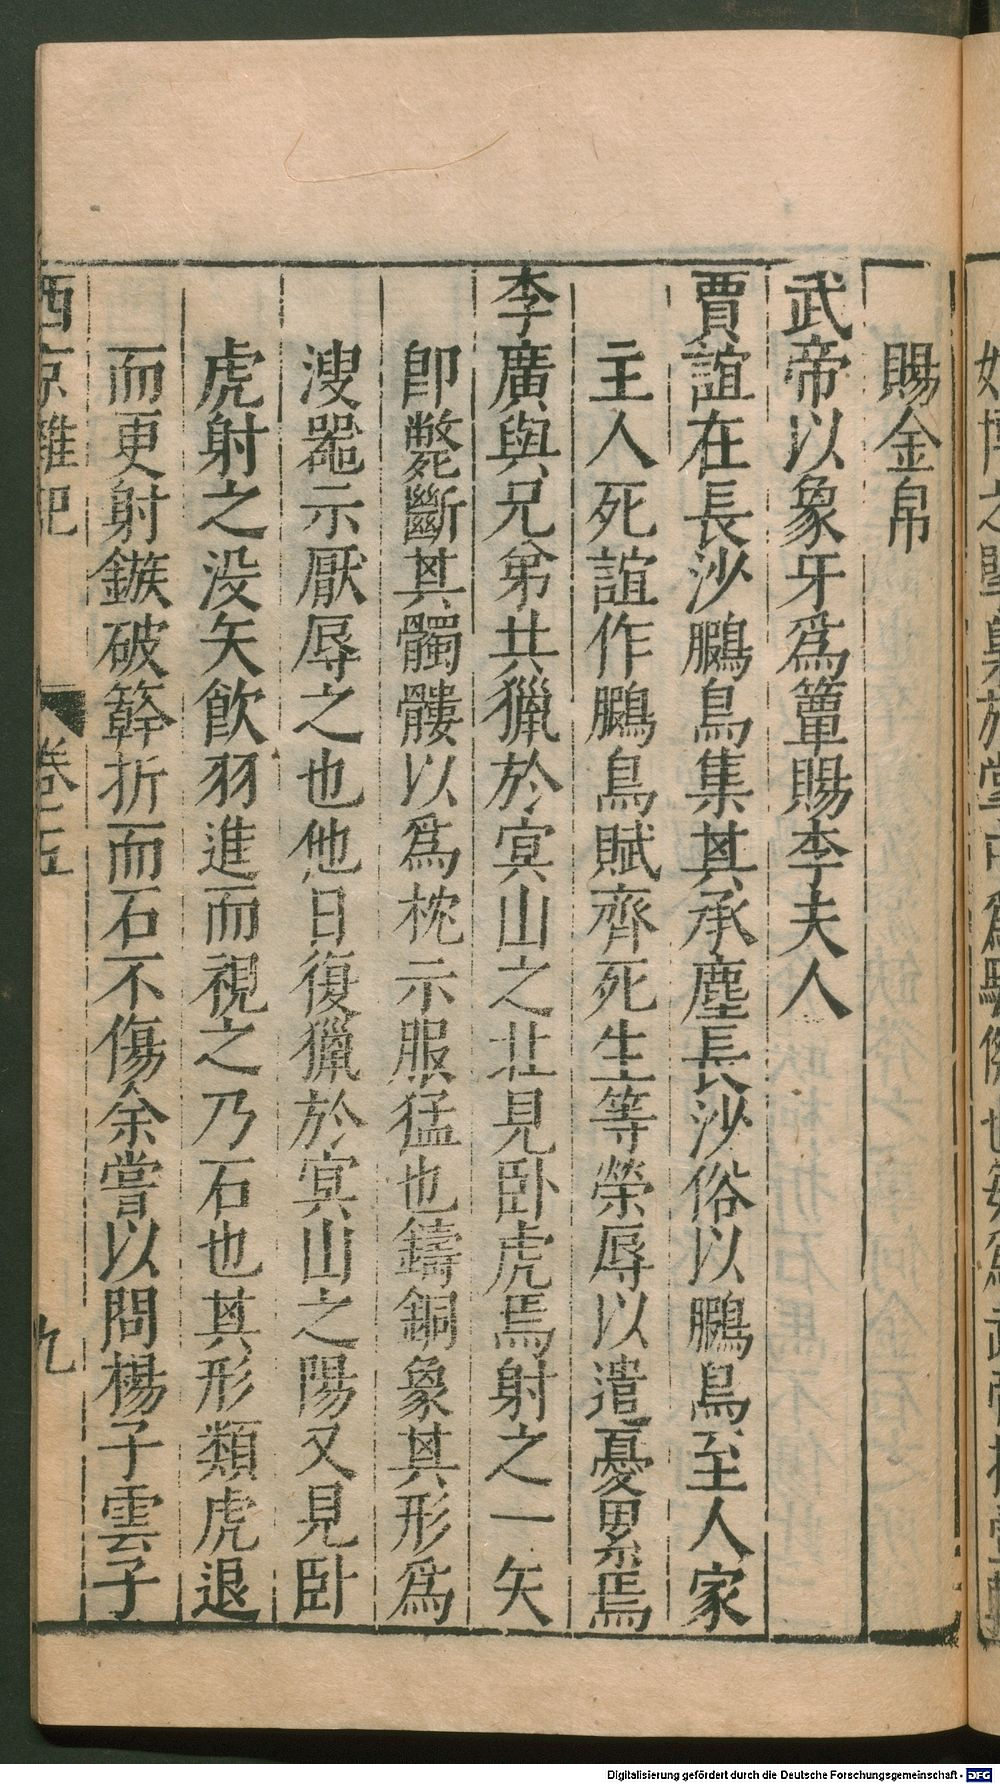 賜金帛
武帝以象牙爲簟賜李夫人
賈誼在長沙鵩鳥集其承塵長沙俗以鵩鳥至人家
主人死誼作鵩鳥賦齊死生等榮辱以遣憂累焉
李廣與兄弟共獵於冥山之北見卧虎焉射之一矢
卽斃斷其髑髏以爲枕示服猛也鑄銅象其形爲
溲器示厭辱之也他日復獵於冥山之陽又見卧
虎射之没矢飮羽進而視之乃石也其形類虎退
而更射鏃破簳折而石不傷余嘗以問楊子雲子
西京雜記
卷五
九
Digitalisierung gefördert durch die Deutsche Forschungsgemeinschaft - DFG